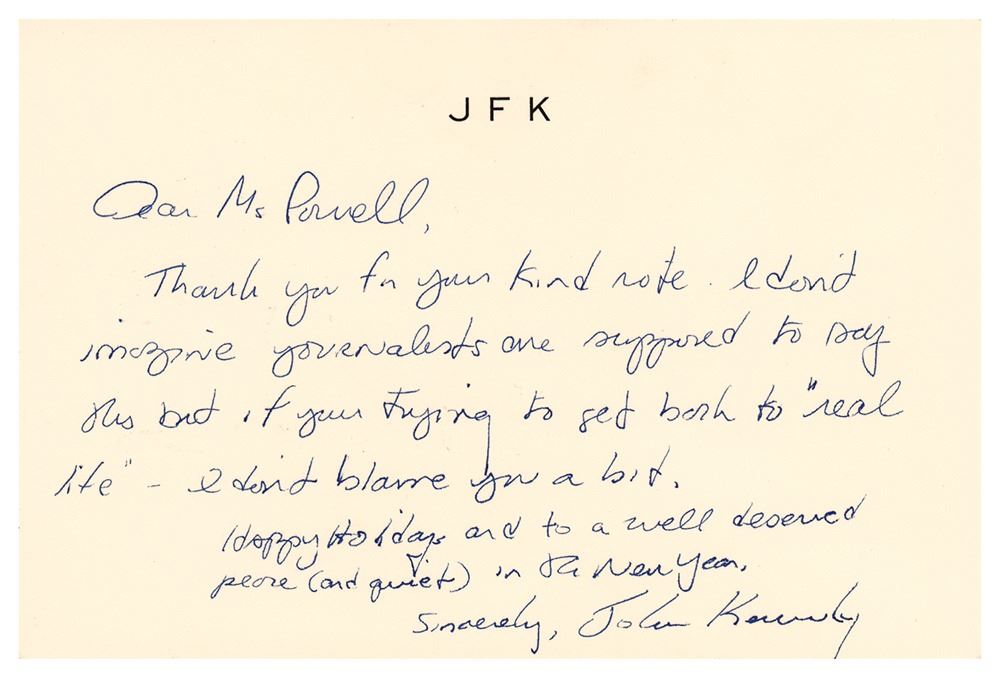 JFK
Dear Ms Powell,
Thank you for your kind note. I don't
imagine journalists are supposed to say
this but if your trying to get back to "real
life" - I don't blame you a bit.
Happy Holidays and to a well deserved
peace (and quiet) in the New Year.
Sincerely, John Kennedy